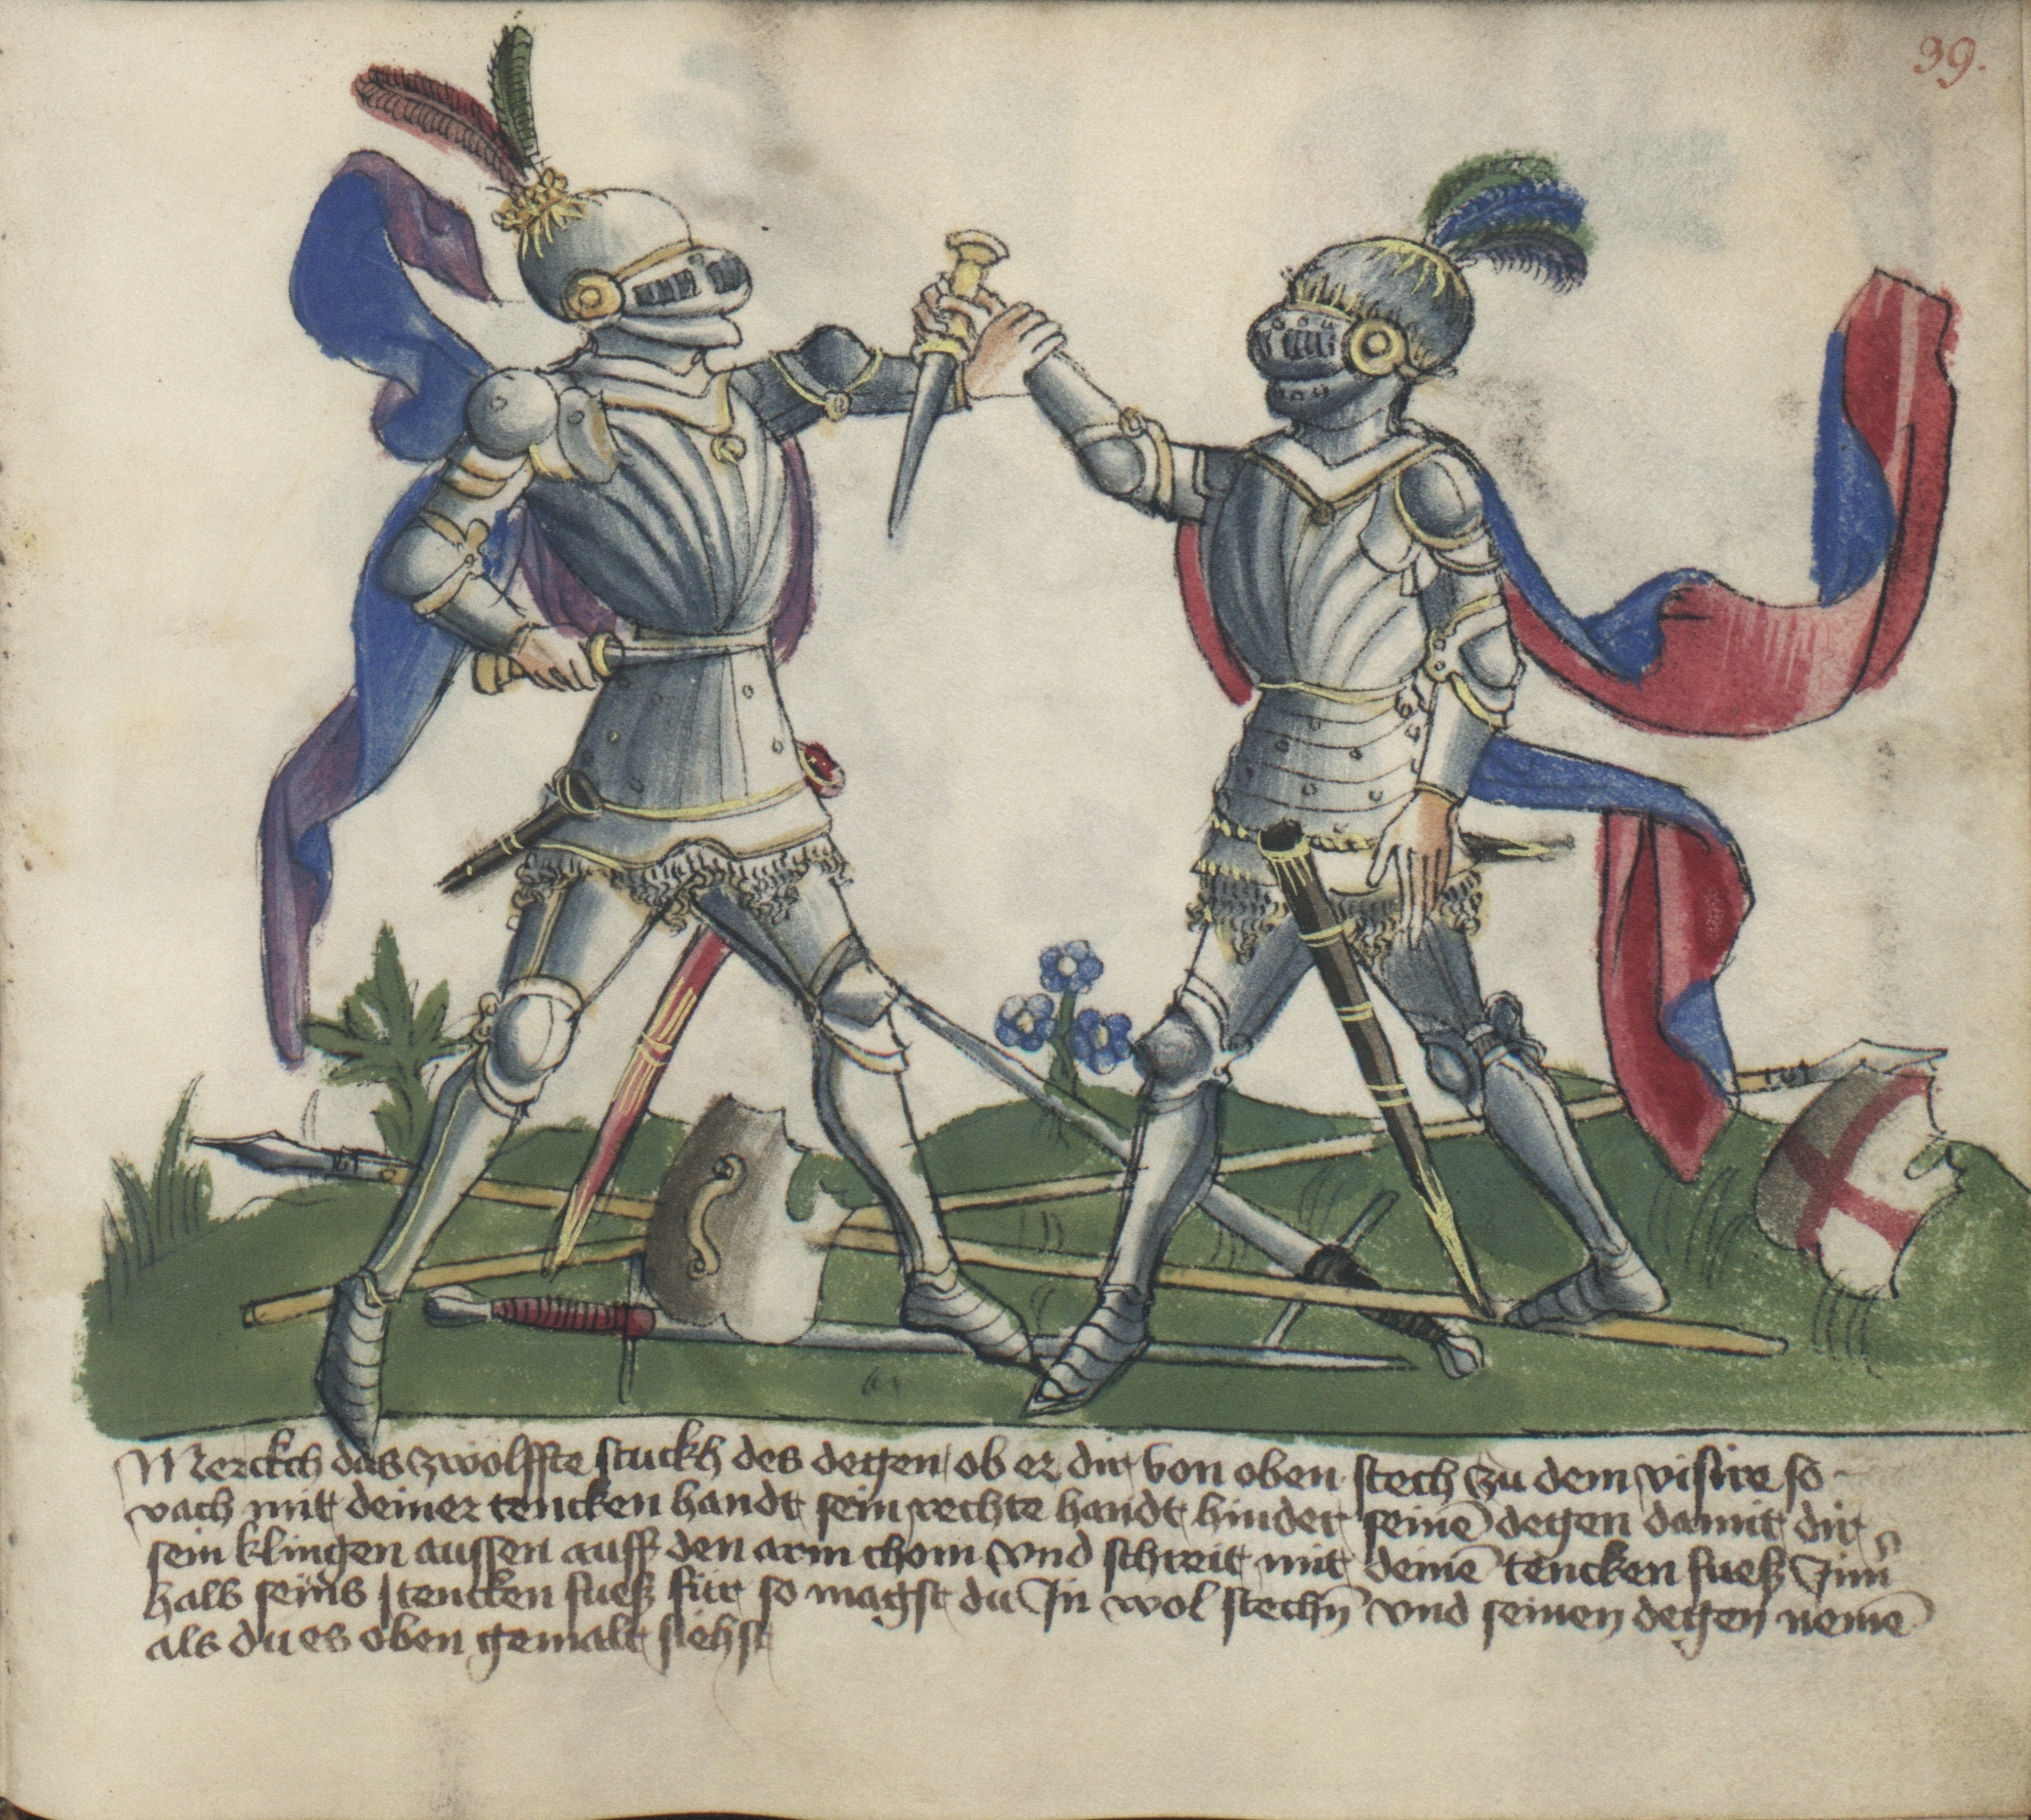 39.
Merckch das zwölffte stuckh des degen ob er dir von oben stech zu dem visire so
vach mit deiner tencken handt sein rechte handt hinder seinē degen damit dir
sein klingen aussen auff den arm chom vnd schreit mit deinē tencken fueß Inn
halb seins tencken fueß für so magst du In wol stechn̄ vnd seinen degen nemē
als du es oben gemalt siehst